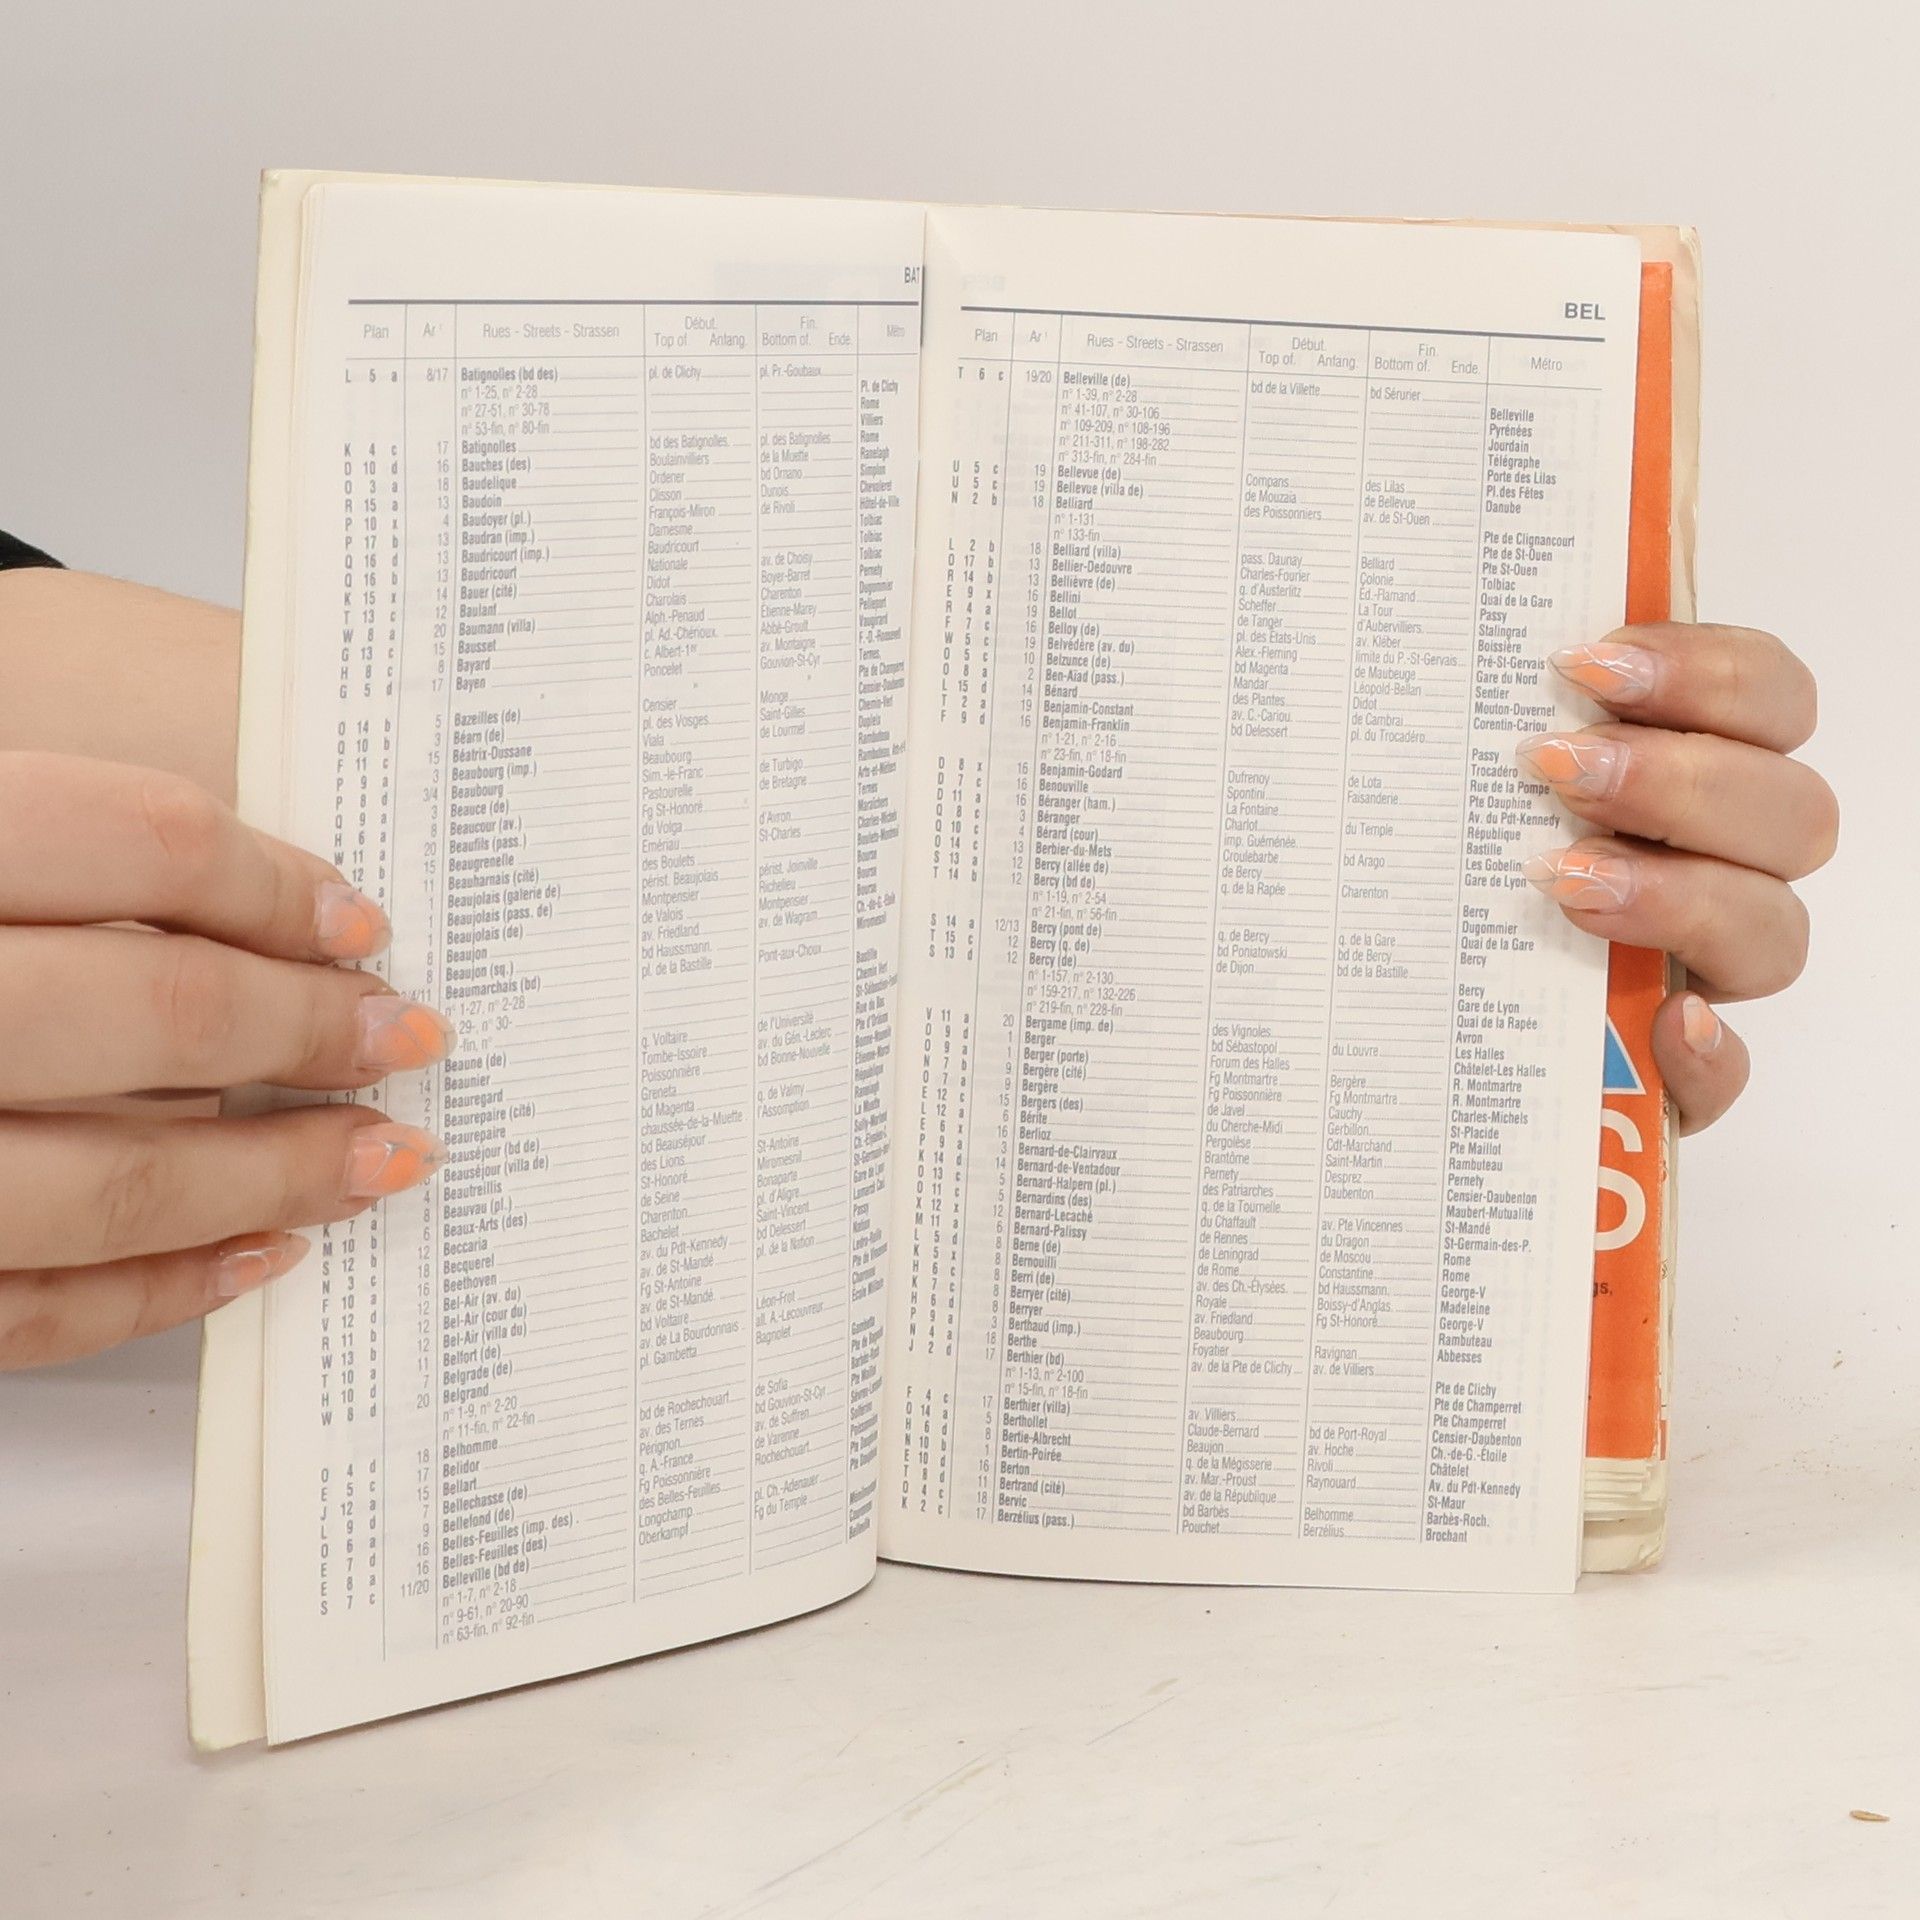 BAT
Plan Ar Rues - Streets - Strassen Début. Top of. Anfang. Fin. Bottom of. Ende. Métro
L 5 a 8/17 Batignolles (bd des) pl. de Clichy pl. Pr.-Goubaux
n° 1-25, n° 2-28 Pl. de Clichy
n° 27-51, n° 30-78 Rome
n° 53-fin, n° 80-fin Villiers
K 4 c 17 Batignolles bd des Batignolles. pl. des Batignolles Rome
D 10 d 16 Bauches (des) Boulainvilliers de la Muette Ranelagh
O 3 a 18 Baudelique Ordener bd Ornano Simplon
R 15 a 13 Baudoin Clisson Dunois Chevaleret
P 10 x 4 Baudoyer (pl.) François-Miron de Rivoli Hôtel-de-Ville
P 17 b 13 Baudran (imp.) Damesme Tolbiac
Q 16 d 13 Baudricourt (imp.) Baudricourt Tolbiac
Q 16 b 13 Baudricourt Nationale av. de Choisy Tolbiac
K 15 x 14 Bauer (cité) Didot Boyer-Barret Pernety
T 13 c 12 Baulant Charolais Charenton Dugommier
W 8 a 20 Baumann (villa) Alph.-Penaud Étienne-Marey Pelleport
G 13 c 15 Bausset pl. Ad.-Chérioux. Abbé-Groult Vaugirard
H 8 c 8 Bayard c. Albert-1er av. Montaigne F.-D.-Roosevelt
G 5 d 17 Bayen Poncelet Gouvion-St-Cyr Ternes,
Pte de Champerret
O 14 b 5 Bazeilles (de) Censier Monge Censier-Daubenton
Q 10 b 3 Béarn (de) pl. des Vosges Saint-Gilles Chemin-Vert
F 11 c 15 Béatrix-Dussane Viala de Lourmel Dupleix
P 9 a 3 Beaubourg (imp.) Beaubourg Rambuteau
P 8 d 3/4 Beaubourg Sim.-le-Franc de Turbigo
Q 9 a 3 Beauce (de) Pastourelle de Bretagne Arts-et-Métiers
H 6 a 8 Beaucour (av.) Fg St-Honoré Ternes
W 11 a 20 Beaufils (pass.) du Volga d'Avron Maraîchers
12 b 15 Beaugrenelle Emériau St-Charles Charles-Michels
11 Beauharnais (cité) des Boulets Boulets-Montreuil
1 Beaujolais (galerie de) périst. Beaujolais périst. Joinville Bourse
1 Beaujolais (pass. de) Montpensier Richelieu Bourse
1 Beaujolais (de) de Valois Montpensier Bourse
8 Beaujon av. Friedland av. de Wagram Ch.-de-G.-Etoile
8 Beaujon (sq.) bd Haussmann. Miromesnil
Beaumarchais (bd) pl. de la Bastille Pont-aux-Choux
n° 1-27, n° 2-28 Bastille
29-, n° 30- Chemin Vert
-fin, n°
Beaune (de) q. Voltaire de l'Université Rue du Bac
14 Beaunier Tombe-Issoire av. du Gén.-Leclerc Pte d'Orléans
2 Beauregard Poissonnière bd Bonne-Nouvelle Bonne-Nouvelle
2 Beaurepaire (cité) Greneta Étienne-Marcel
Beaurepaire bd Magenta q. de Valmy République
Beauséjour (bd de) chaussée-de-la-Muette l'Assomption Ranelagh
Beauséjour (villa de) bd Beauséjour La Muette
4 Beautreillis des Lions St-Antoine Sully-Morland
8 Beauvau (pl.) St-Honoré Miromesnil
6 Beaux-Arts (des) de Seine Bonaparte
12 Beccaria Charenton pl. d'Aligre Gare de Lyon
18 Becquerel Bachelet Saint-Vincent Lamarck Caul
16 Beethoven av. du Pdt-Kennedy bd Delessert Passy
12 Bel-Air (av. du) av. de St-Mandé pl. de la Nation Nation
12 Bel-Air (cour du) Fg St-Antoine Ledru-Rollin
12 Bel-Air (villa du) av. de St-Mandé. Pte de Vincennes
11 Belfort (de) bd Voltaire Léon-Frot Charonne
7 Belgrade (de) av. de La Bourdonnais all. A.-Lecouvreur École Militaire
20 Belgrand pl. Gambetta Bagnolet
n° 1-9, n° 2-20 Gambetta
n° 11-fin, n° 22-fin Pte de Bagnolet
O 4 d 18 Belhomme bd de Rochechouart de Sofia Barbès-Roch
E 5 c 17 Belidor av. des Ternes bd Gouvion-St-Cyr Pte Maillot
J 12 a 15 Bellart Pérignon av. de Suffren Sèvres-Lecourbe
L 9 d 7 Bellechasse (de) q. A.-France de Varenne Solférino
O 6 a 9 Bellefond (de) Fg Poissonnière Rochechouart Poissonnière
E 7 d 16 Belles-Feuilles (imp. des) des Belles-Feuilles Pte Dauphine
E 8 a 16 Belles-Feuilles (des) Longchamp pl. Ch.-Adenauer Pte Dauphine
S 7 c 11/20 Belleville (bd de) Oberkampf Fg du Temple
n° 1-7, n° 2-18 Ménilmontant
n° 9-61, n° 20-90 Couronnes
n° 63-fin, n° 92-fin Belleville
BEL
Plan Ar Rues - Streets - Strassen Début. Top of. Anfang. Fin. Bottom of. Ende. Métro
T 6 c 19/20 Belleville (de) bd de la Villette bd Sérurier
n° 1-39, n° 2-28 Belleville
n° 41-107, n° 30-106 Pyrénées
n° 109-209, n° 108-196 Jourdain
n° 211-311, n° 198-282 Télégraphe
n° 313-fin, n° 284-fin Porte des Lilas
U 5 c 19 Bellevue (de) Compans des Lilas Pl. des Fêtes
U 5 c 19 Bellevue (villa de) de Mouzaïa de Bellevue Danube
N 2 b 18 Belliard des Poissonniers av. de St-Ouen
n° 1-131 Pte de Clignancourt
n° 133-fin Pte de St-Ouen
L 2 b 18 Belliard (villa) pass. Daunay Belliard Pte St-Ouen
O 17 b 13 Bellier-Dedouvre Charles-Fourier Colonie Tolbiac
R 14 b 13 Bellièvre (de) q. d'Austerlitz Ed.-Flamand Quai de la Gare
E 9 x 16 Bellini Scheffer La Tour Passy
R 4 a 19 Bellot de Tanger d'Aubervilliers. Stalingrad
F 7 c 16 Belloy (de) pl. des États-Unis av. Kléber Boissière
W 5 c 19 Belvédère (av. du) Alex.-Fleming limite du P.-St-Gervais Pré-St-Gervais
O 5 c 10 Belzunce (de) bd Magenta de Maubeuge Gare du Nord
O 8 a 2 Ben-Aïad (pass.) Mandar Léopold-Bellan Sentier
L 15 d 14 Bénard des Plantes Didot Mouton-Duvernet
T 2 a 19 Benjamin-Constant av. C.-Cariou. de Cambrai Corentin-Cariou
F 9 d 16 Benjamin-Franklin bd Delessert pl. du Trocadéro
n° 1-21, n° 2-16 Passy
n° 23-fin, n° 18-fin Trocadéro
D 8 x 16 Benjamin-Godard Dufrenoy de Lota Rue de la Pompe
D 7 c 16 Benouville Spontini Faisanderie Pte Dauphine
D 11 a 16 Béranger (ham.) La Fontaine Av. du Pdt-Kennedy
Q 8 c 3 Béranger Charlot du Temple République
Q 10 c 4 Bérard (cour) imp. Guéménée Bastille
O 14 c 13 Berbier-du-Mets Croulebarbe bd Arago Les Gobelin
S 13 a 12 Bercy (allée de) de Bercy Gare de Lyon
T 14 b 12 Bercy (bd de) q. de la Rapée Charenton
n° 1-19, n° 2-54 Bercy
n° 21-fin, n° 56-fin Dugommier
S 14 a 12/13 Bercy (pont de) q. de Bercy q. de la Gare Quai de la Gare
T 15 c 12 Bercy (q. de) bd Poniatowski bd de Bercy Bercy
S 13 d 12 Bercy (de) de Dijon bd de la Bastille
n° 1-157, n° 2-130 Bercy
n° 159-217, n° 132-226 Gare de Lyon
n° 219-fin, n° 228-fin Quai de la Rapée
V 11 a 20 Bergame (imp. de) des Vignoles Avron
O 9 d 1 Berger bd Sébastopol du Louvre Les Halles
O 9 a 1 Berger (porte) Forum des Halles Châtelet-Les Halles
N 7 b 9 Bergère (cité) Fg Montmartre Bergère R. Montmartre
O 7 a 9 Bergère Fg Poissonnière Fg Montmartre R. Montmartre
E 12 c 15 Bergers (des) de Javel Cauchy Charles-Michels
L 12 a 6 Bérite du Cherche-Midi Gerbillon St-Placide
E 6 x 16 Berlioz Pergolèse Cdt-Marchand Pte Maillot
P 9 a 3 Bernard-de-Clairvaux Brantôme Saint-Martin Rambuteau
K 14 d 14 Bernard-de-Ventadour Pernety Desprez Pernety
O 13 c 5 Bernard-Halpern (pl.) des Patriarches Daubenton Censier-Daubenton
O 11 c 5 Bernardins (des) q. de la Tournelle Maubert-Mutualité
X 12 x 12 Bernard-Lecache du Chaffault av. Pte Vincennes St-Mandé
M 11 a 6 Bernard-Palissy de Rennes du Dragon St-Germain-des-P.
L 5 d 8 Berne (de) de Leningrad de Moscou Rome
K 5 x 8 Bernouilli de Rome Constantine Rome
H 6 c 8 Berri (de) av. des Ch.-Élysées. bd Haussmann. George-V
K 7 c 8 Berryer (cité) Royale Boissy-d'Anglas. Madeleine
H 6 d 8 Berryer av. Friedland Fg St-Honoré George-V
P 9 a 3 Berthaud (imp.) Beaubourg Rambuteau
N 4 a 18 Berthe Foyatier Ravignan Abbesses
J 2 d 17 Berthier (bd) av. de la Pte de Clichy av. de Villiers
n° 1-13, n° 2-100 Pte de Clichy
n° 15-fin, n° 18-fin Pte de Champerret
F 4 c 17 Berthier (villa) av. Villiers Pte Champerret
O 14 a 5 Berthollet Claude-Bernard bd de Port-Royal Censier-Daubenton
H 6 d 8 Bertie-Albrecht Beaujon av. Hoche Ch.-de-G.-Étoile
N 10 b 1 Bertin-Poirée q. de la Mégisserie Rivoli Châtelet
E 10 d 16 Berton av. Mar.-Proust Raynouard Av. du Pdt-Kennedy
T 8 d 11 Bertrand (cité) av. de la République St-Maur
O 4 c 18 Bervic bd Barbès Belhomme Barbès-Roch.
K 2 c 17 Berzélius (pass.) Pouchet Berzélius Brochant
S
gs,